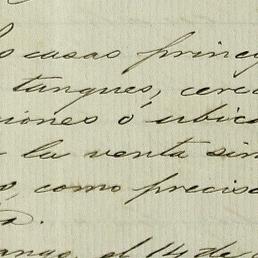 s casas princ
tanques, cerc
iones o ubic
la venta sin
o, como precis
ango, el 14 de